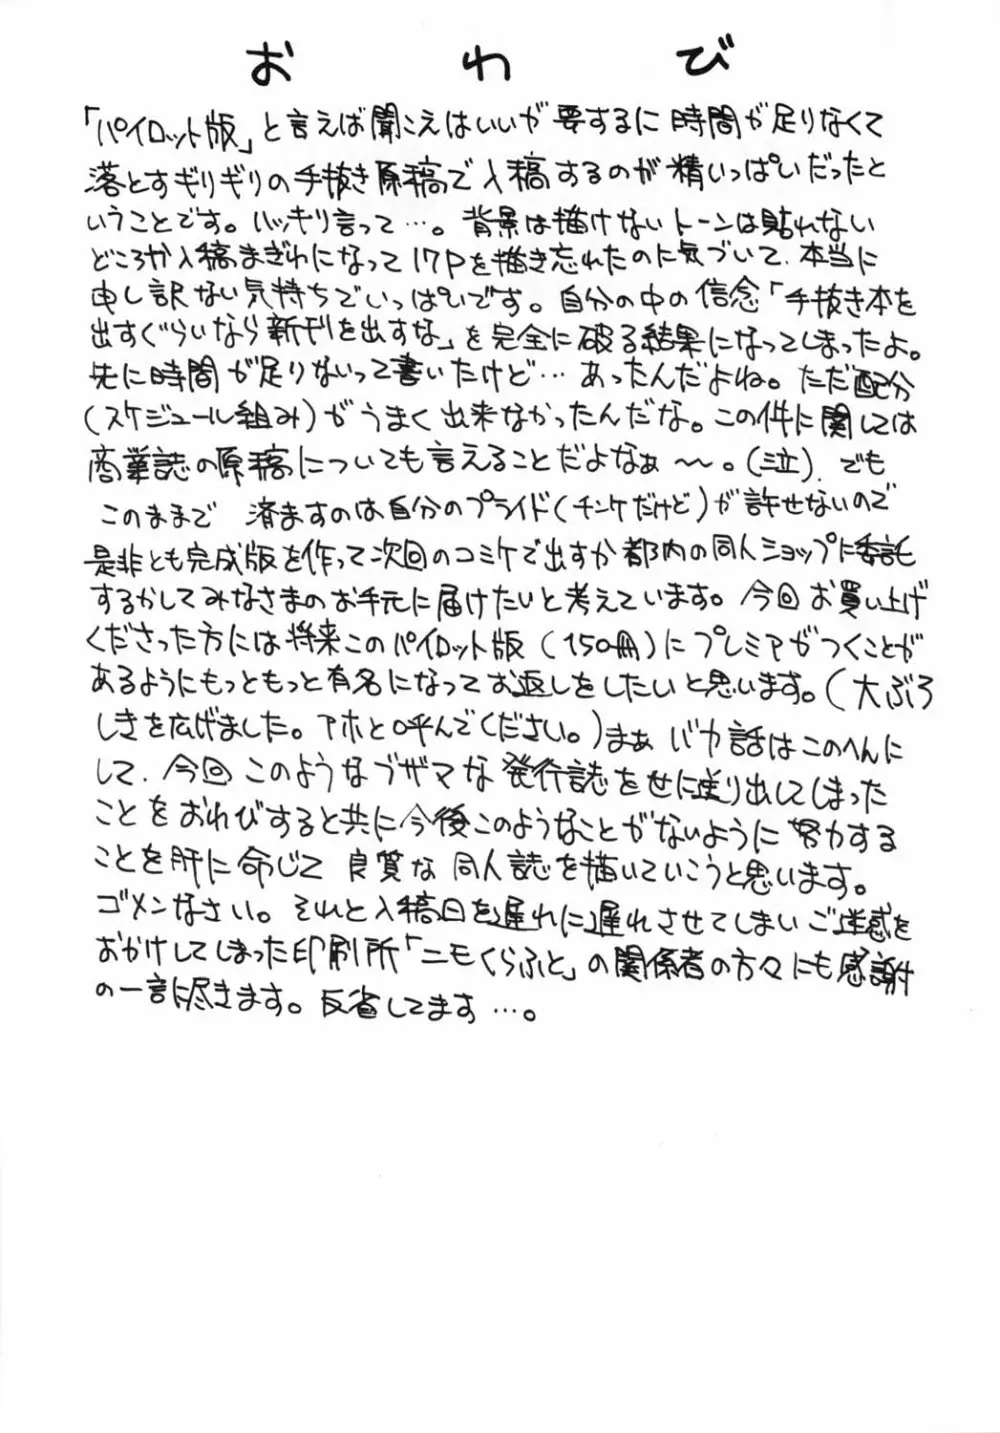 おわび
「パイロット版」と言えば聞こえはいいが要するに時間が足りなくて
落とすギリギリの手抜き原稿で入稿するのが精いっぱいだったと
いうことです。ハッキリ言って…。背景は描けないトーンは貼れない
どころか入稿まぎわになって17Pを描き忘れたのに気づいて、本当に
申し訳ない気持ちでいっぱいです。自分の中の信念「手抜き本を
出すぐらいなら新刊を出すな」を完全に破る結果になってしまったよ。
先に時間が足りないって書いたけど…あったんだよね。ただ配分
(スケジュール組み)がうまく出来なかったんだな。この件に関しては
商業誌の原稿についても言えることだよなぁ〜。(泣)、でも
このままで 済ますのは自分のプライド(チンケだけど)が許せないので
是非とも完成版を作って次回のコミケで出すか都内の同人ショップに委託
するかしてみなさまのお手元に届けたいと考えています。今回お買い上げ
くださった方には将来このパイロット版(150冊)にプレミアがつくことが
あるようにもっともっと有名になってお返しをしたいと思います。(大ぶろ
しきを広げました。アホと呼んでください。)まぁバカ話はこのへんに
して、今回このようなブザマな発行誌を世に送り出してしまった
ことをおわびすると共に今後このようなことがないように努力する
ことを肝に命じて良質な同人誌を描いていこうと思います。
ゴメンなさい。それと入稿日を遅れに遅れさせてしまいご迷惑を
おかけしてしまった印刷所「ニモくらふと」の関係者の方々にも感謝
の一言に尽きます。反省してます…。